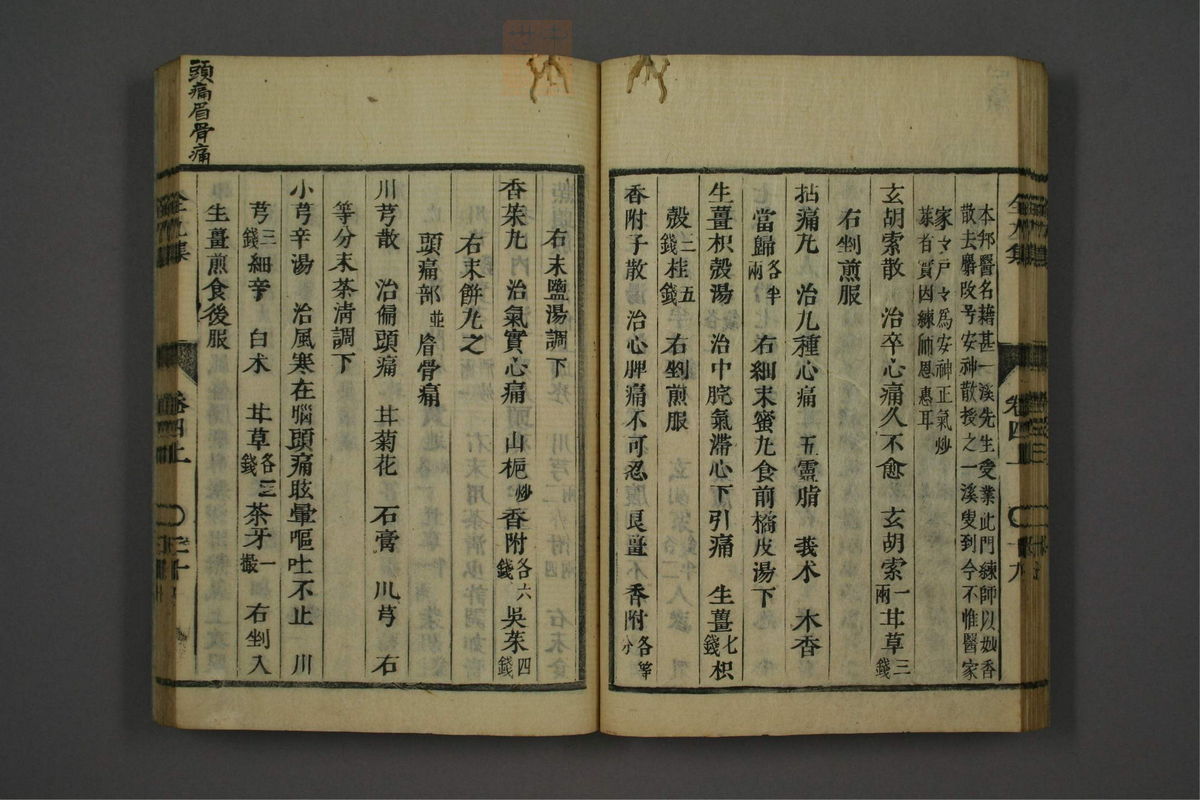 本邦醫名藉甚一溪先生受業此門練師以妙香
散去麝改号安神散授之一溪叟到今不惟醫家
家々戸々為安神正氣炒
菉者實因練師恩惠耳
玄胡索散　治卒心痛久不愈　玄胡索一兩 甘草三錢
右剉煎服
拈痛丸　治九種心痛　五靈脂　莪朮　木香
當歸各半兩　右細末蜜丸食前橘皮湯下
生薑枳殻湯　治中脘氣滯心下引痛　生薑七錢 枳
殻二錢 桂五錢　右剉煎服
香附子散　治心脾痛不可忍　良薑　香附各等分
右末鹽湯調下
香茱丸　治氣實心痛　山梔炒 香附各六錢 吳茱四錢
右末餅丸之
頭痛部並眉骨痛
川芎散　治偏頭痛　甘菊花　石膏　川芎　右
等分末茶淸調下
小芎辛湯　治風寒在腦頭痛眩暈嘔吐不止　川
芎三錢 細辛　白朮　甘草各三錢 茶牙一撮　右剉入
生薑煎食後服
頭痛眉骨痛
全九集　卷四上　十九
全九集　卷四上　二十